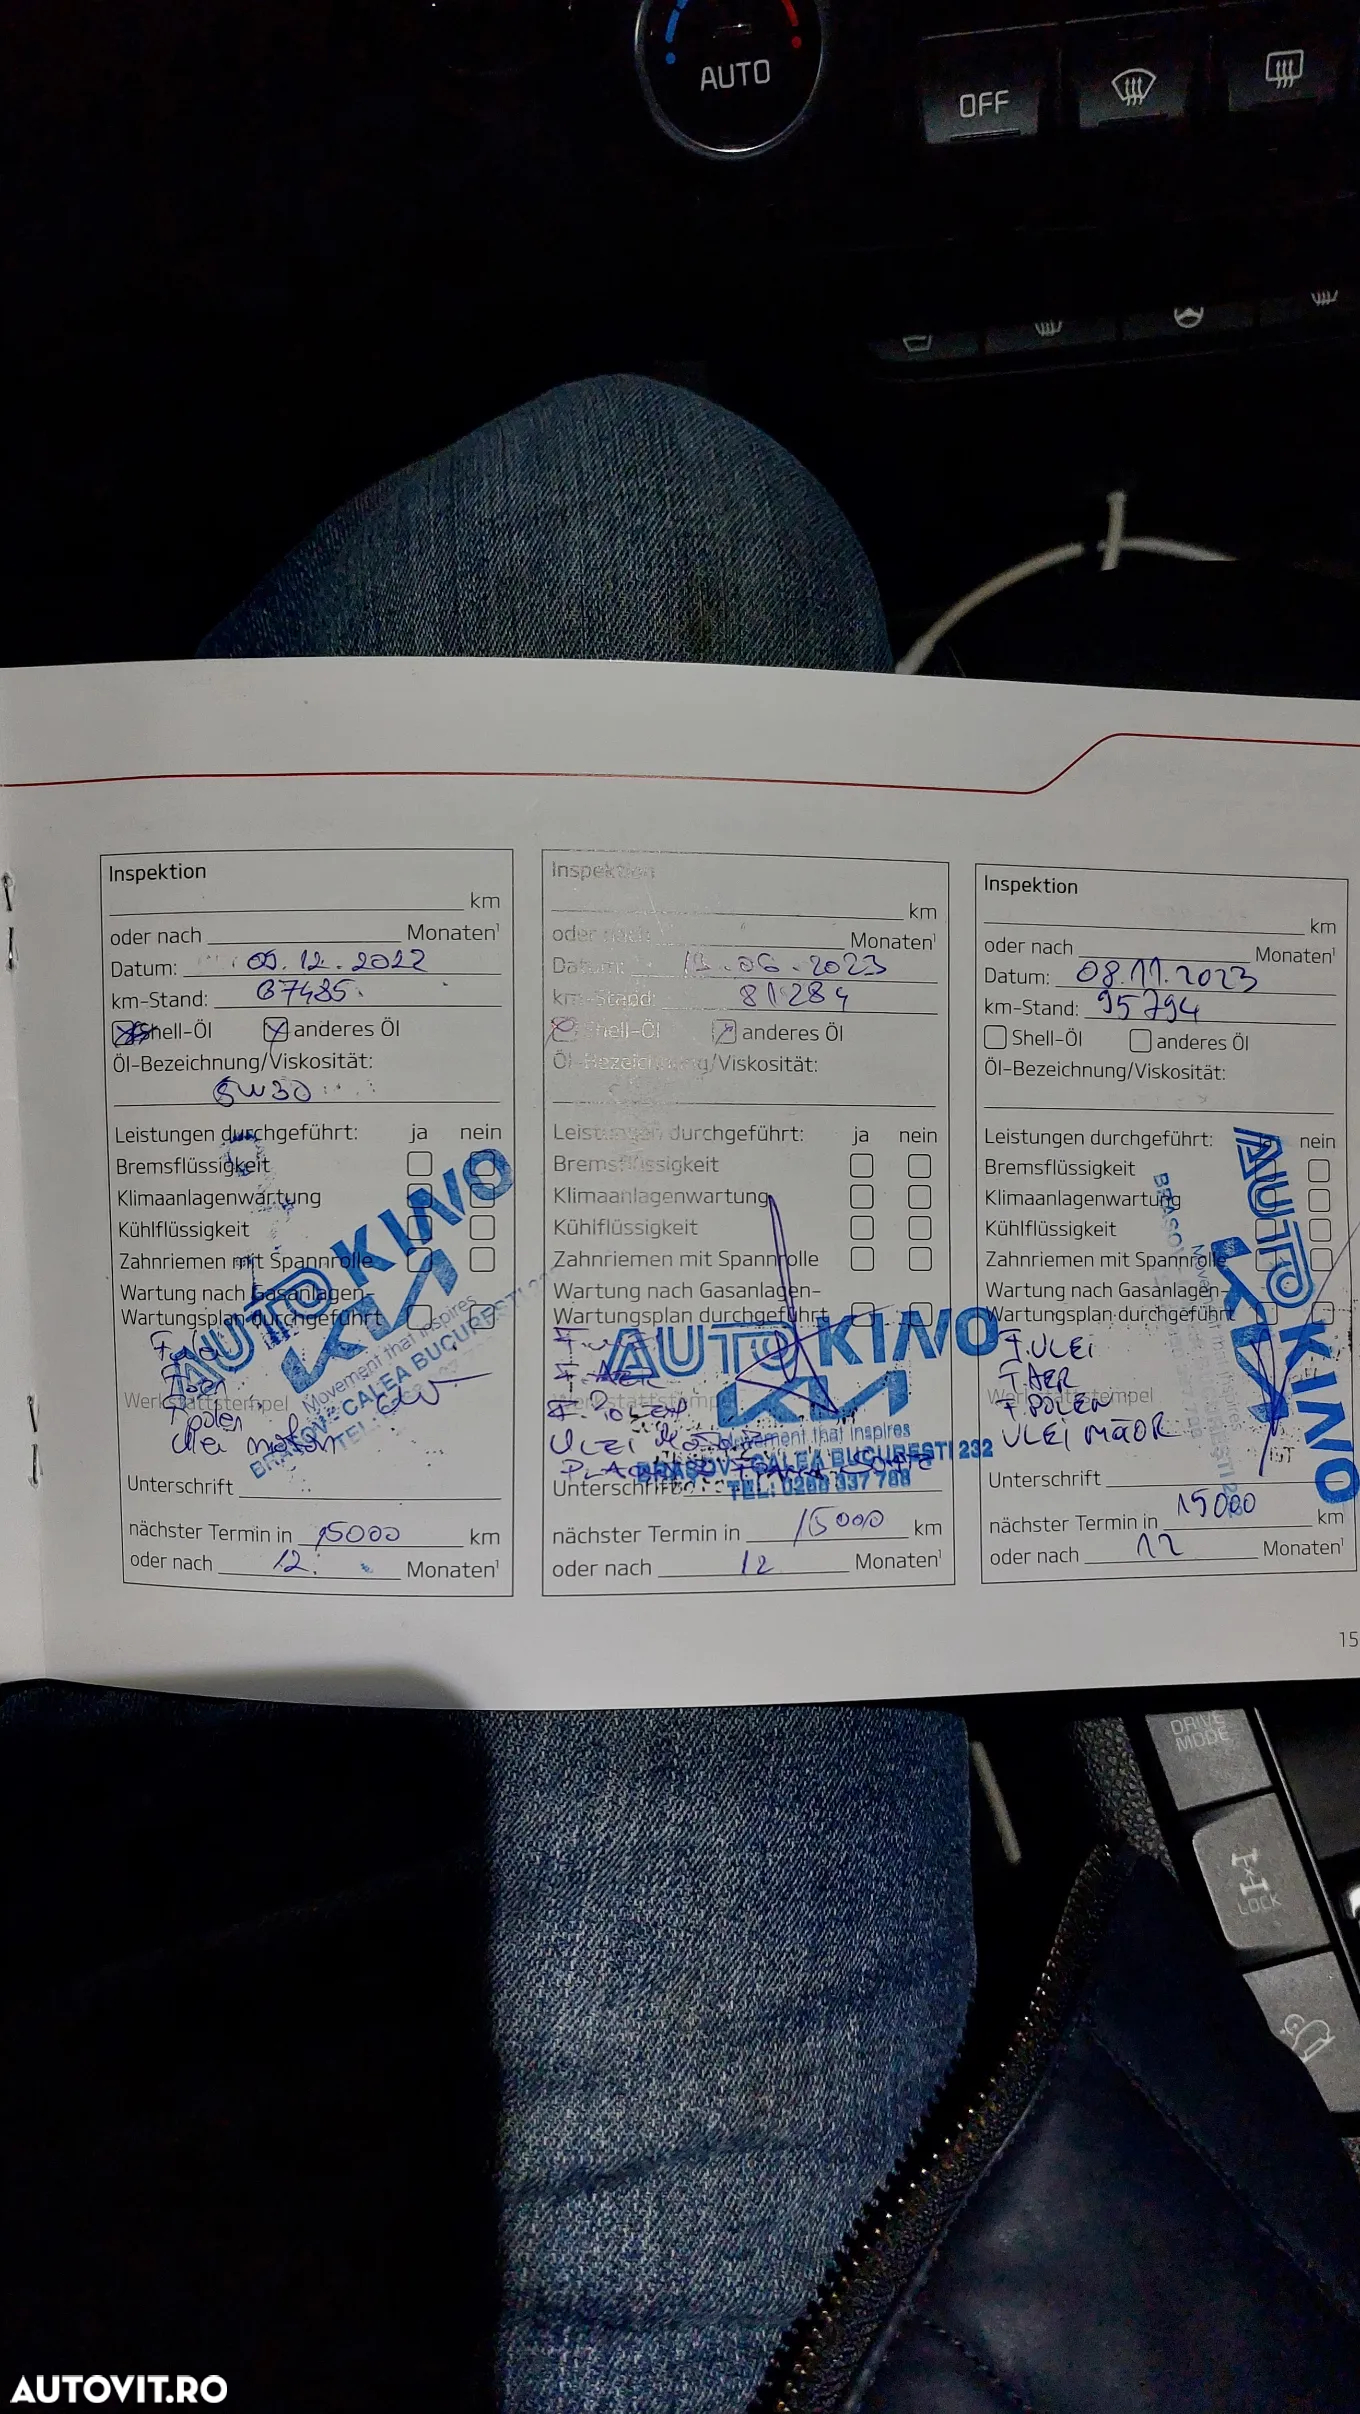 AUTO
OFF
Inspektion
km
oder nach Monaten¹
Datum: 05.12.2022
km-Stand: 67485
Shell-Öl anderes Öl
Öl-Bezeichnung/Viskosität:
5W30
Leistungen durchgeführt: ja nein
Bremsflüssigkeit
Klimaanlagenwartung
Kühlflüssigkeit
Zahnriemen mit Spannrolle
Wartung nach Gasanlagen-
Wartungsplan durchgeführt
AUTO KINO
KIA
Movement that inspires
BRASOV - CALEA BUCURESTI
TEL:
Werkstattstempel
F polen
Ulei motor
Unterschrift
nächster Termin in 15000 km
oder nach 12 Monaten¹
Inspektion
km
oder nach Monaten¹
Datum: 13.06.2023
km-Stand: 81284
Shell-Öl anderes Öl
Öl-Bezeichnung/Viskosität:
Leistungen durchgeführt: ja nein
Bremsflüssigkeit
Klimaanlagenwartung
Kühlflüssigkeit
Zahnriemen mit Spannrolle
Wartung nach Gasanlagen-
Wartungsplan durchgeführt
AUTO KINO
F. AER
KIA
F. Polen
Movement that inspires
ULEI Motor
BRASOV - CALEA BUCURESTI 232
TEL: 0268 337 788
Unterschrift
nächster Termin in 15000 km
oder nach 12 Monaten¹
Inspektion
km
oder nach Monaten¹
Datum: 08.11.2023
km-Stand: 95794
Shell-Öl anderes Öl
Öl-Bezeichnung/Viskosität:
Leistungen durchgeführt: ja nein
Bremsflüssigkeit
Klimaanlagenwartung
Kühlflüssigkeit
Zahnriemen mit Spannrolle
Wartung nach Gasanlagen-
Wartungsplan durchgeführt
AUTO KINO
KIA
F. ULEI
F. AER
Werkstattstempel
F. POLEN
ULEI
Unterschrift
nächster Termin in 15000 km
oder nach 12 Monaten¹
15
DRIVE
MODE
LOCK
AUTOVIT.RO